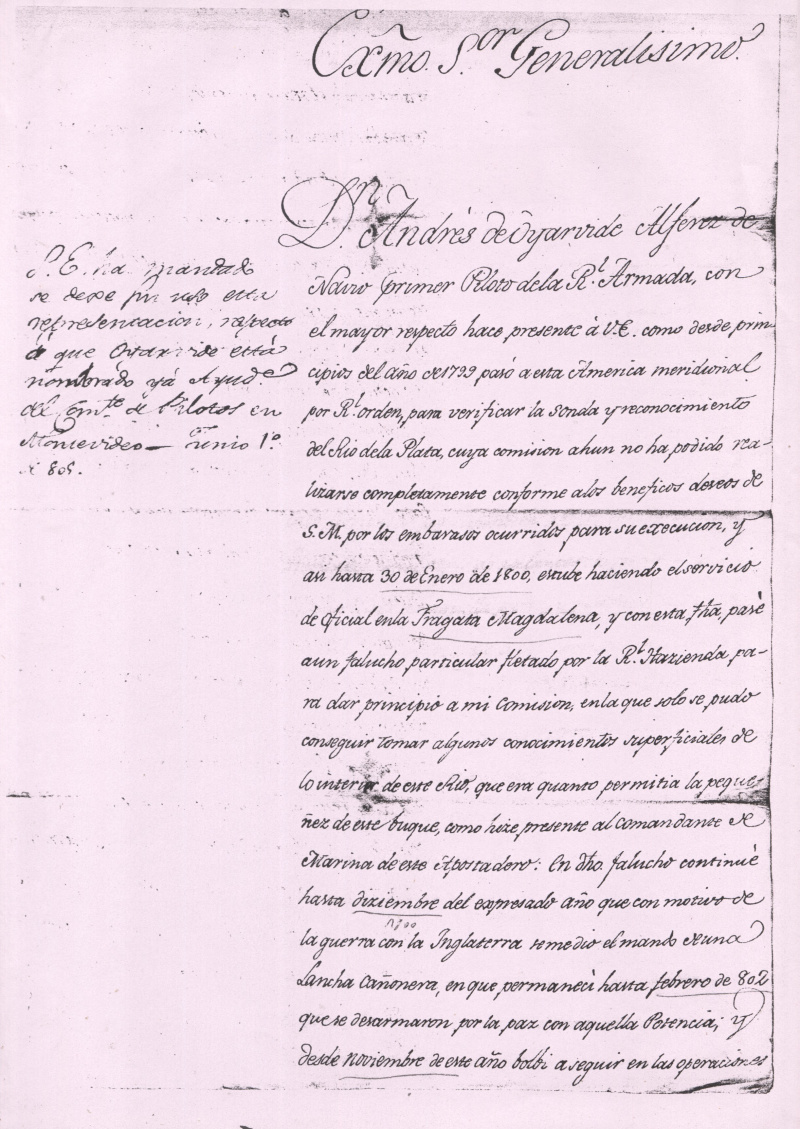 Exmõ. S.or Generalisimo.
Dn. Andrès de Oyarvide Alferez de
Navio primer Piloto de la Rl. Armada, con
el mayor respecto hace presente à V.E. como desde prin-
cipios del año de 1799 pasó a esta America meridional
por Rl. orden, para verificar la sonda y reconocimiento
del Rio de la Plata, cuya comision ahun no ha podido rea-
lizarse completamente conforme a los beneficos deseos de
S.M. por los embarasos ocurridos para su execucion, y
asi hasta 30 de Enero de 1800, estube haciendo el servicio
de oficial en la Fragata Magdalena, y con esta fha, pasè
a un falucho particular fletado por la Rl. Hazienda pa-
ra dar principio a mi Comision, en la que solo se pudo
conseguir tomar algunos conocimientos superficiales de
lo interior de este Rio, que era quanto permitia la peque-
ñez de este buque, como hize presente al Comandante de
Marina de este Apostadero: En dho. falucho continuè
hasta diziembre del expresado año que con motivo de
1800
la guerra con la Inglaterra se me dio el mando de una
Lancha Cañonera, en que permanecì hasta febrero de 802
que se desarmaron por la paz con aquella Potencia; y
desde noviembre de este año bolbi a seguir en las operaciones
S.E. ha mandado
se dexe sin uso esta
representacion, respecto
à que Oyarvide està
nombrado yà Ayud.e
del Com.te de Pilotos en
Montevideo— Junio 1.o
805.